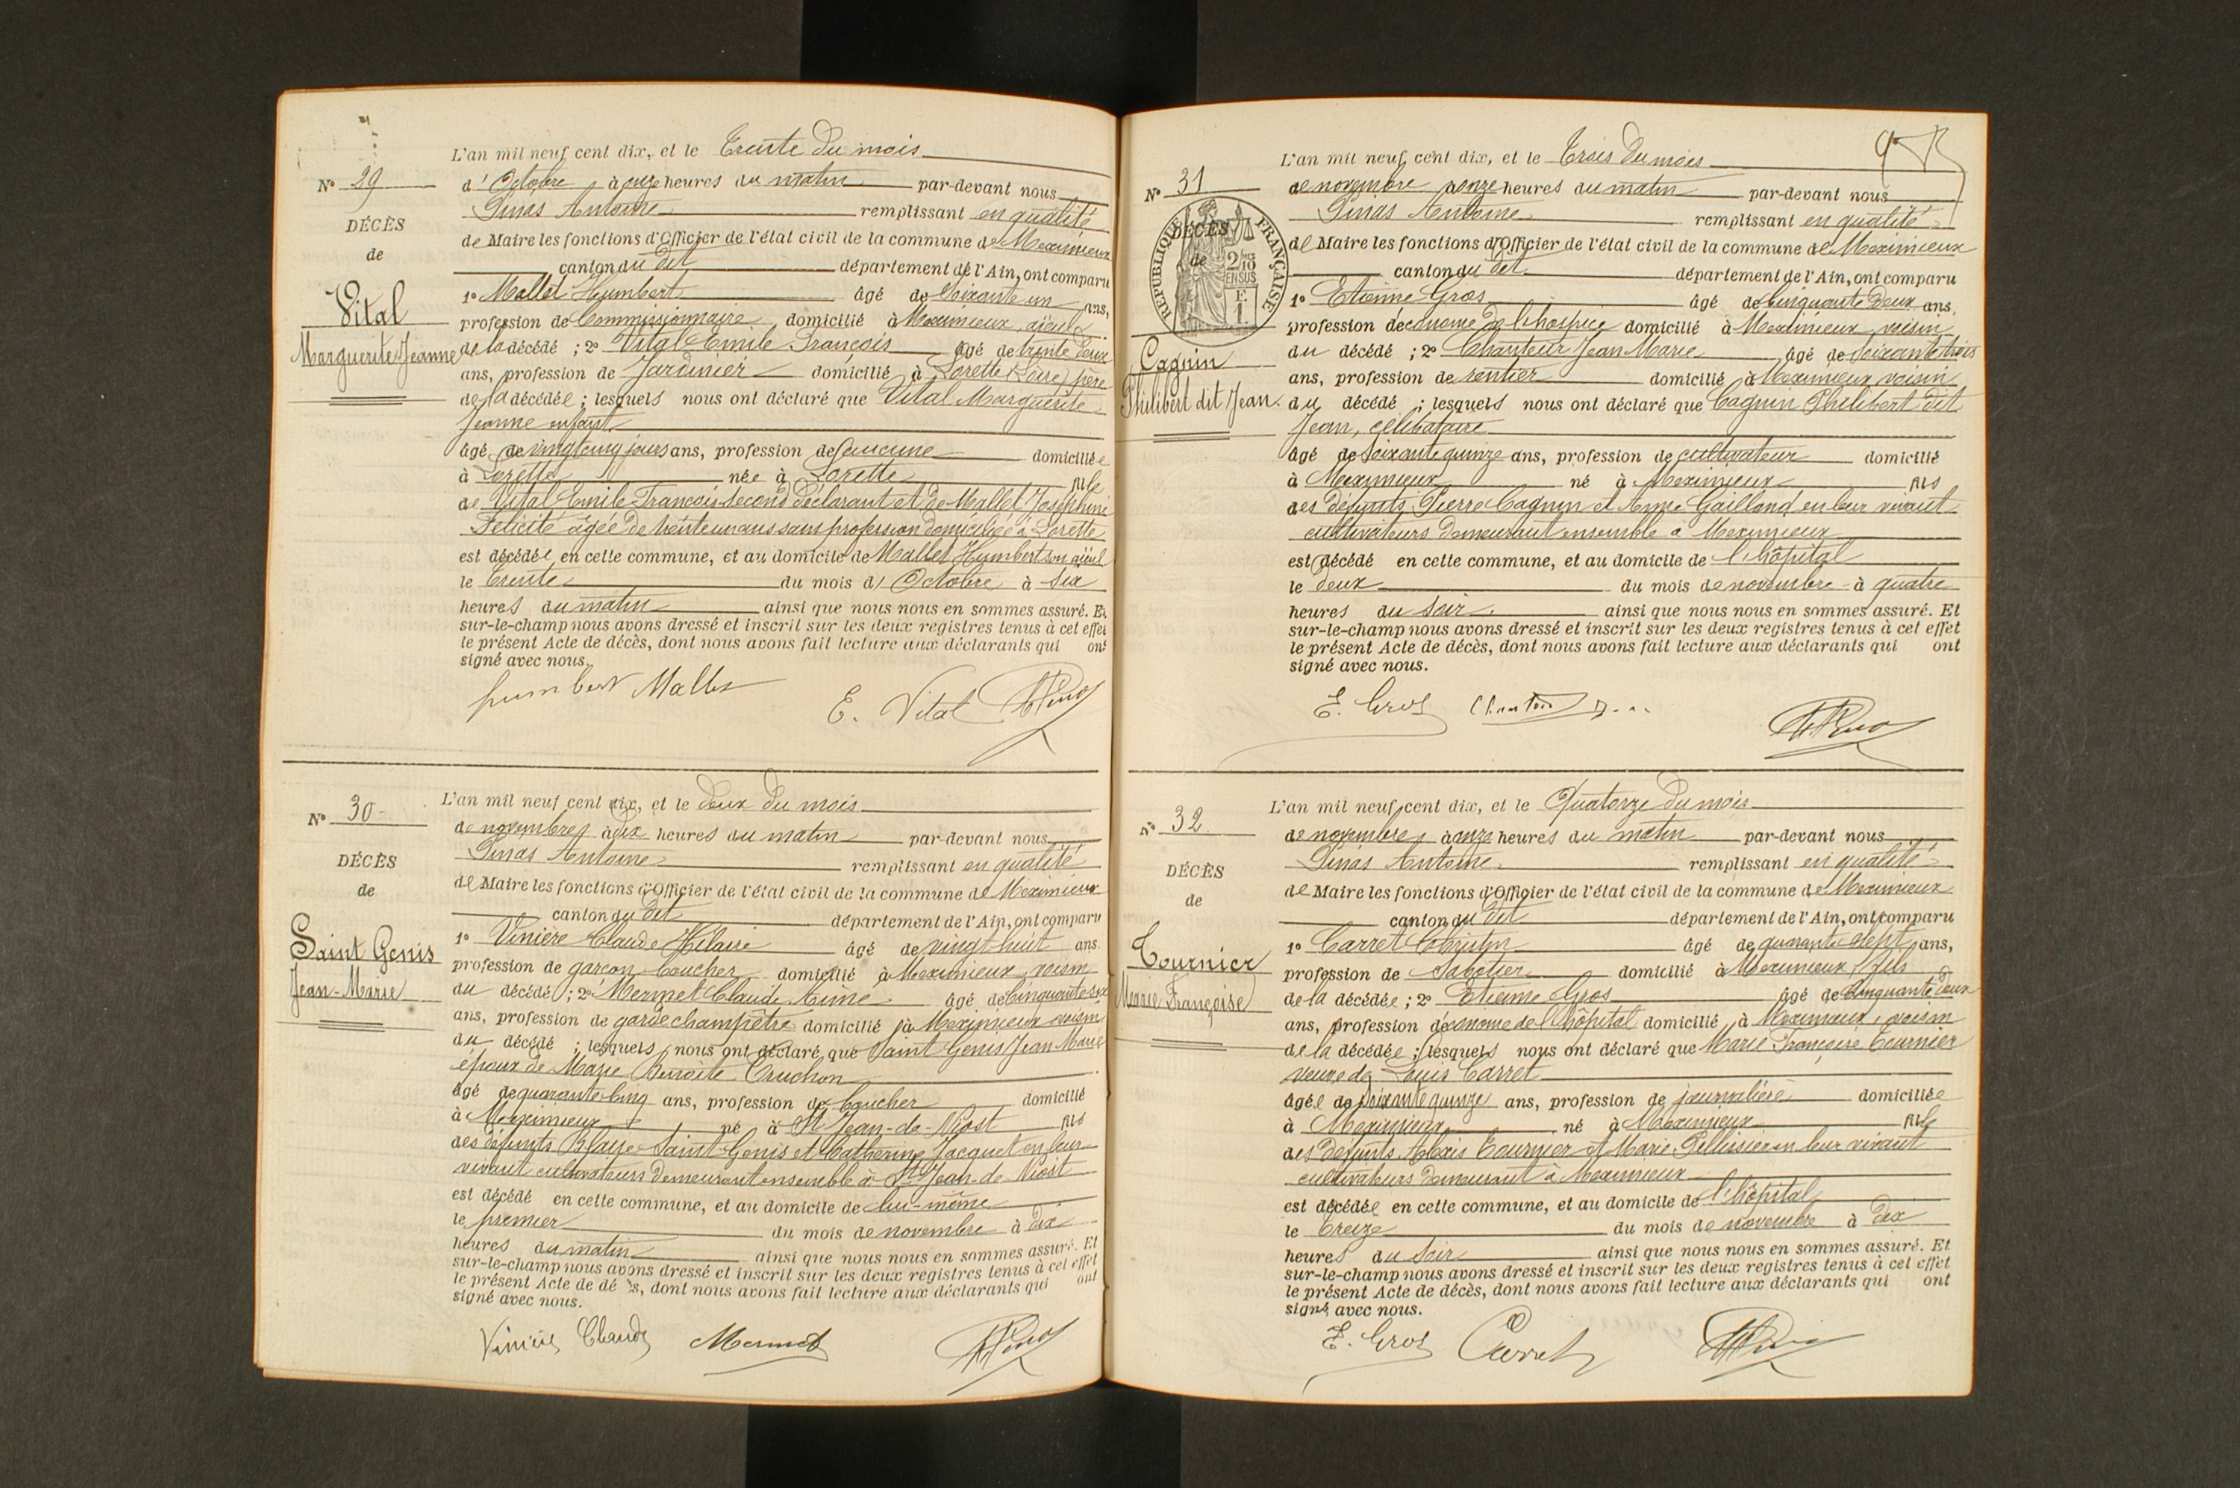 N° 29
DÉCÈS
de
Vital
Marguerite Jeanne
L'an mil neuf cent dix, et le Trente du mois
d'Octobre à onze heures du matin par-devant nous
Pinas Antoine remplissant en qualité
de Maire les fonctions d'Officier de l'état civil de la commune de Meximieux
canton du dit département de l'Ain, ont comparu
1° Mallet Humbert âgé de Soixante un ans,
profession de Commissionnaire domicilié à Meximieux, aïeul
de la décédé ; 2° Vital Emile François âgé de trente deux
ans, profession de Jardinier domicilié à Lorette (Loire) père
de la décédée ; lesquels nous ont déclaré que Vital Marguerite
Jeanne enfant
âgé de vingt cinq jours ans, profession de aucune domiciliée
à Lorette née à Lorette fille
de Vital Emile François second déclarant et de Mallet Joséphine
Félicité âgée de trente un ans sans profession domiciliée à Lorette
est décédée en cette commune, et au domicile de Mallet Humbert son aïeul
le trente du mois d'Octobre à six
heures du matin ainsi que nous nous en sommes assuré. Et
sur-le-champ nous avons dressé et inscrit sur les deux registres tenus à cet effet
le présent Acte de décès, dont nous avons fait lecture aux déclarants qui ont
signé avec nous.
humbert Mallet E. Vital APinas
N° 30
DÉCÈS
de
Saint Genis
Jean-Marie
L'an mil neuf cent dix, et le deux du mois
de novembre à dix heures du matin par-devant nous
Pinas Antoine remplissant en qualité
de Maire les fonctions d'Officier de l'état civil de la commune de Meximieux
canton du dit département de l'Ain, ont comparu
1° Vinière Claude Hilaire âgé de vingt huit ans
profession de garçon boucher domicilié à Meximieux, voisin
du décédé ; 2° Mermet Claude Aimé âgé de Cinquante six
ans, profession de garde champêtre domicilié à Meximieux voisin
du décédé ; lesquels nous ont déclaré que Saint Genis Jean Marie
époux de Marie Benoite Cruchon
âgé de quarante cinq ans, profession de boucher domicilié
à Meximieux né à St Jean-de-Niost fils
des défunts Blaise Saint-Genis et Catherine Jacquet en leur
vivant cultivateurs demeurant ensemble à St Jean-de-Niost
est décédé en cette commune, et au domicile de lui-même
le premier du mois de novembre à dix
heures du matin ainsi que nous nous en sommes assuré. Et
sur-le-champ nous avons dressé et inscrit sur les deux registres tenus à cet effet
le présent Acte de décès, dont nous avons fait lecture aux déclarants qui ont
signé avec nous.
Vinière Claude Mermet APinas
N° 31
DÉCÈS
de
RÉPUBLIQUE FRANÇAISE
2/10
EN SUS
Cagnin
Philibert dit Jean
L'an mil neuf cent dix, et le Trois du mois
de novembre à onze heures du matin par-devant nous
Pinas Antoine remplissant en qualité
de Maire les fonctions d'Officier de l'état civil de la commune de Meximieux
canton du dit département de l'Ain, ont comparu
1° Etienne Gros âgé de Cinquante deux ans,
profession d'économe de l'hospice domicilié à Meximieux, voisin
du décédé ; 2° Chanteur Jean Marie âgé de soixante trois
ans, profession de rentier domicilié à Meximieux voisin
du décédé ; lesquels nous ont déclaré que Cagnin Philibert dit
Jean, célibataire
âgé de soixante quinze ans, profession de cultivateur domicilié
à Meximieux né à Meximieux fils
des défunts Pierre Cagnin et Anne Gailland en leur vivant
cultivateurs demeurant ensemble à Meximieux
est décédé en cette commune, et au domicile de l'hôpital
le deux du mois de novembre à quatre
heures du soir ainsi que nous nous en sommes assuré. Et
sur-le-champ nous avons dressé et inscrit sur les deux registres tenus à cet effet
le présent Acte de décès, dont nous avons fait lecture aux déclarants qui ont
signé avec nous.
E. Gros APinas
N° 32
DÉCÈS
de
Tournier
Marie Françoise
L'an mil neuf cent dix, et le Quatorze du mois
de novembre, à onze heures du matin par-devant nous
Pinas Antoine remplissant en qualité
de Maire les fonctions d'Officier de l'état civil de la commune de Meximieux
canton du dit département de l'Ain, ont comparu
1° Carret âgé de quarante-sept ans,
profession de Sabotier domicilié à Meximieux, fils
de la décédée ; 2° Etienne Gros âgé de Cinquante deux
ans, profession d'économe de l'hôpital domicilié à Meximieux, voisin
de la décédée ; lesquels nous ont déclaré que Marie Françoise Tournier
veuve de Louis Carret
âgée de soixante quinze ans, profession de journalière domiciliée
à Meximieux né à Meximieux fille
des défunts Alexis Tournier et Marie Pellissier en leur vivant
cultivateurs demeurant à Meximieux
est décédée en cette commune, et au domicile de l'hôpital
le treize du mois de novembre à dix
heures du soir ainsi que nous nous en sommes assuré. Et
sur-le-champ nous avons dressé et inscrit sur les deux registres tenus à cet effet
le présent Acte de décès, dont nous avons fait lecture aux déclarants qui ont
signé avec nous.
E. Gros Carret APinas